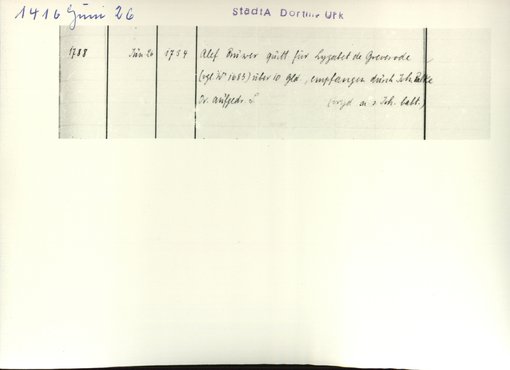 1416 Juni 26
StadtA Dortm. Urk
1788 Juni 26 1754 Alef Bruwer quitt für Lyzabet de Greverode
(vgl. Nr 1683) über 10 Gld., empfangen durch Joh.
Or. aufgedr. S (crgd. n. s. Joh. babt.)